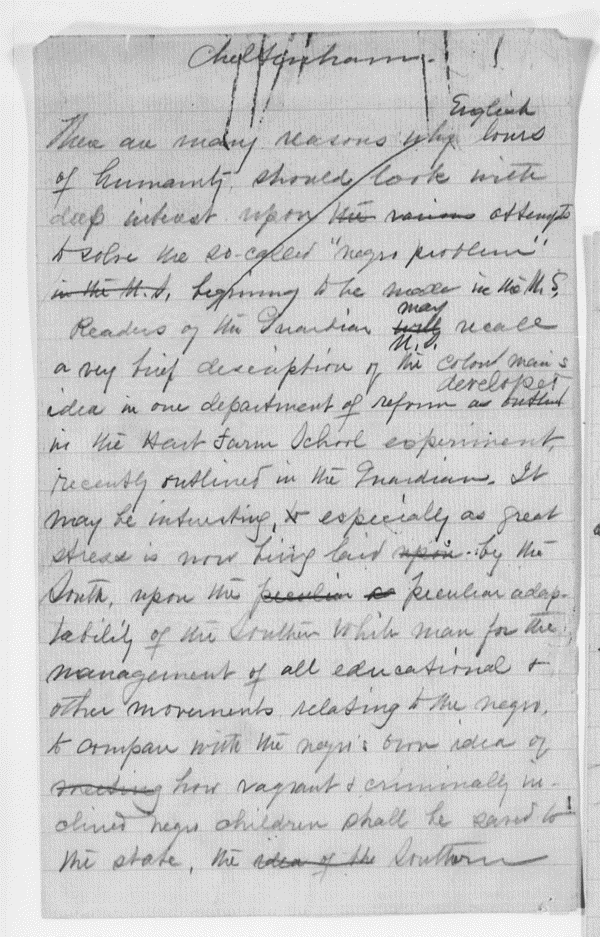 Cheltenham.
English
There are many reasons why lovers
of humanity should look with
deep interest upon the various attempts
to solve the so-called "negro problem"
in the U.S. beginning to be made in the U.S.
may
Readers of the Guardian will recall
U.S.
a very brief description of the colored man's
developed
idea in one department of reform as outlined
in the Hart Farm School experiment,
recently outlined in the Guardian. It
may be interesting, & especially as great
stress is now being laid upon by the
South, upon the peculiar peculiar adap-
tability of the Southern white man for the
management of all educational &
other movements relating to the negro,
to compare with the negro's own idea of
meeting how vagrant & criminally in-
clined negro children shall be saved to
the state, the idea of the Southern